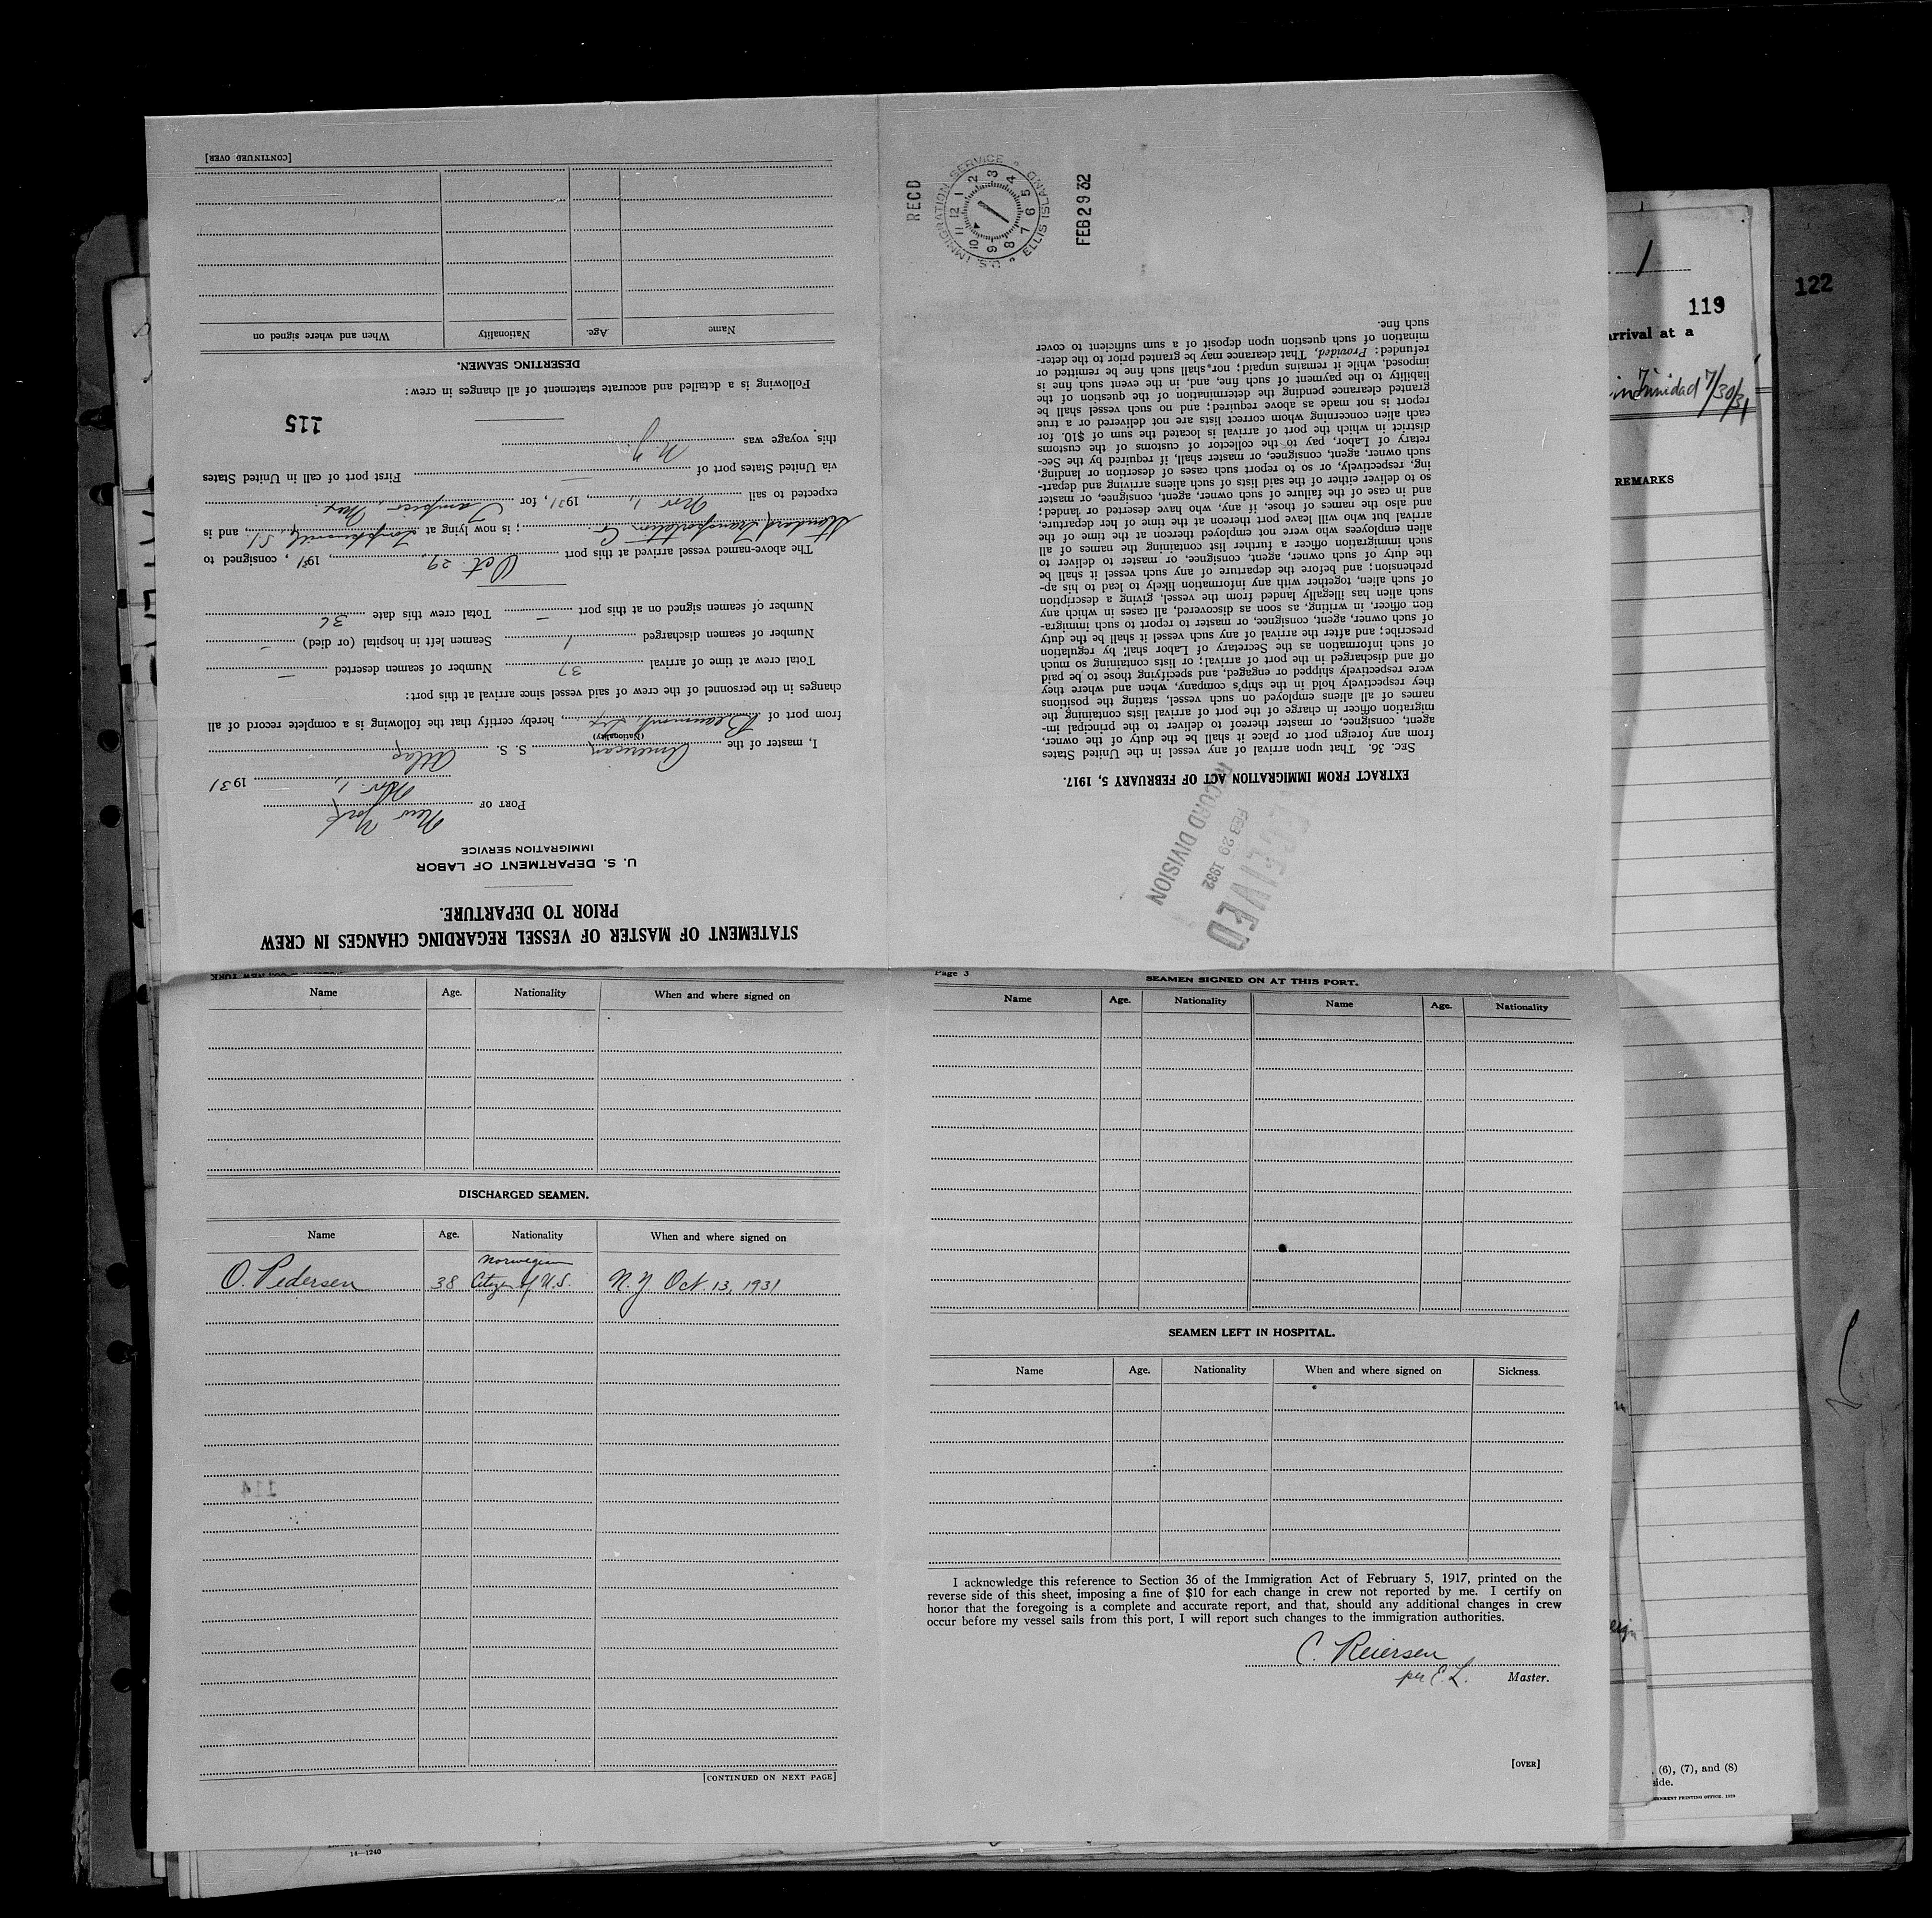 STATEMENT OF MASTER OF VESSEL REGARDING CHANGES IN CREW
PRIOR TO DEPARTURE.
U. S. DEPARTMENT OF LABOR
IMMIGRATION SERVICE
PORT OF New York
Nov. 1, 1931
I, master of the American S. S. Atlas
(Nationality)
from port of Beaumont, Tex, hereby certify that the following is a complete record of all
changes in the personnel of the crew of said vessel since arrival at this port:
Total crew at time of arrival 37 Number of seamen deserted —
Number of seamen discharged 1 Seamen left in hospital (or died) —
Number of seamen signed on at this port — Total crew this date 36
The above-named vessel arrived at this port Oct. 29, 1931, consigned to
Standard Transportation Co.; is now lying at Tompkinsville, S.I., and is
expected to sail Nov 1, 1931, for Tampico, Mex.
via United States port of — First port of call in United States
this voyage was N.Y.
115
Following is a detailed and accurate statement of all changes in crew:
DESERTING SEAMEN.
Name Age. Nationality When and where signed on
[CONTINUED OVER]
EXTRACT FROM IMMIGRATION ACT OF FEBRUARY 5, 1917.
SEC. 36. That upon arrival of any vessel in the United States
from any foreign port or place it shall be the duty of the owner,
agent, consignee, or master thereof to deliver to the principal im-
migration officer in charge of the port of arrival lists containing the
names of all aliens employed on such vessel, stating the positions
they respectively hold in the ship's company, when and where they
were respectively shipped or engaged, and specifying those to be paid
off and discharged in the port of arrival; or lists containing so much
of such information as the Secretary of Labor shall by regulation
prescribe; and after the arrival of any such vessel it shall be the duty
of such owner, agent, consignee, or master to report to such immigra-
tion officer, in writing, as soon as discovered, all cases in which any
such alien has illegally landed from the vessel, giving a description
of such alien, together with any information likely to lead to his ap-
prehension; and before the departure of any such vessel it shall be
the duty of such owner, agent, consignee, or master to deliver to
such immigration officer a further list containing the names of all
alien employees who were not employed thereon at the time of the
arrival but who will leave port thereon at the time of her departure,
and also the names of those, if any, who have deserted or landed;
and in case of the failure of such owner, agent, consignee, or master
so to deliver either of the said lists of such aliens arriving and depart-
ing, respectively, or so to report such cases of desertion or landing,
such owner, agent, consignee, or master shall, if required by the Sec-
retary of Labor, pay to the collector of customs of the customs
district in which the port of arrival is located the sum of $10. for
each alien concerning whom correct lists are not delivered or a true
report is not made as above required; and no such vessel shall be
granted clearance pending the determination of the question of the
liability to the payment of such fine, and, in the event such fine is
imposed, while it remains unpaid; nor shall such fine be remitted or
refunded: Provided, That clearance may be granted prior to the deter-
mination of such question upon deposit of a sum sufficient to cover
such fine.
REC D
U.S. IMMIGRATION SERVICE ELLIS ISLAND
1 2 3 4 5 6 7 8 9 10 11 12
FEB 29 32
RECEIVED
FEB 29 1932
RECORD DIVISION
Name Age. Nationality When and where signed on
DISCHARGED SEAMEN.
Name Age. Nationality When and where signed on
Norwegian
O. Pedersen 38 Citizen of U.S. N.Y. Oct. 13, 1931
114
[CONTINUED ON NEXT PAGE]
Page 3
SEAMEN SIGNED ON AT THIS PORT.
Name Age. Nationality Name Age. Nationality
SEAMEN LEFT IN HOSPITAL.
Name Age. Nationality When and where signed on Sickness.
I acknowledge this reference to Section 36 of the Immigration Act of February 5, 1917, printed on the
reverse side of this sheet, imposing a fine of $10 for each change in crew not reported by me. I certify on
honor that the foregoing is a complete and accurate report, and that, should any additional changes in crew
occur before my vessel sails from this port, I will report such changes to the immigration authorities.
C. Reiersen
per E. L. Master.
[OVER]
1
119
122
arrival at a
in Trinidad 7/30/31
REMARKS
(6), (7), and (8)
side.
14—1240